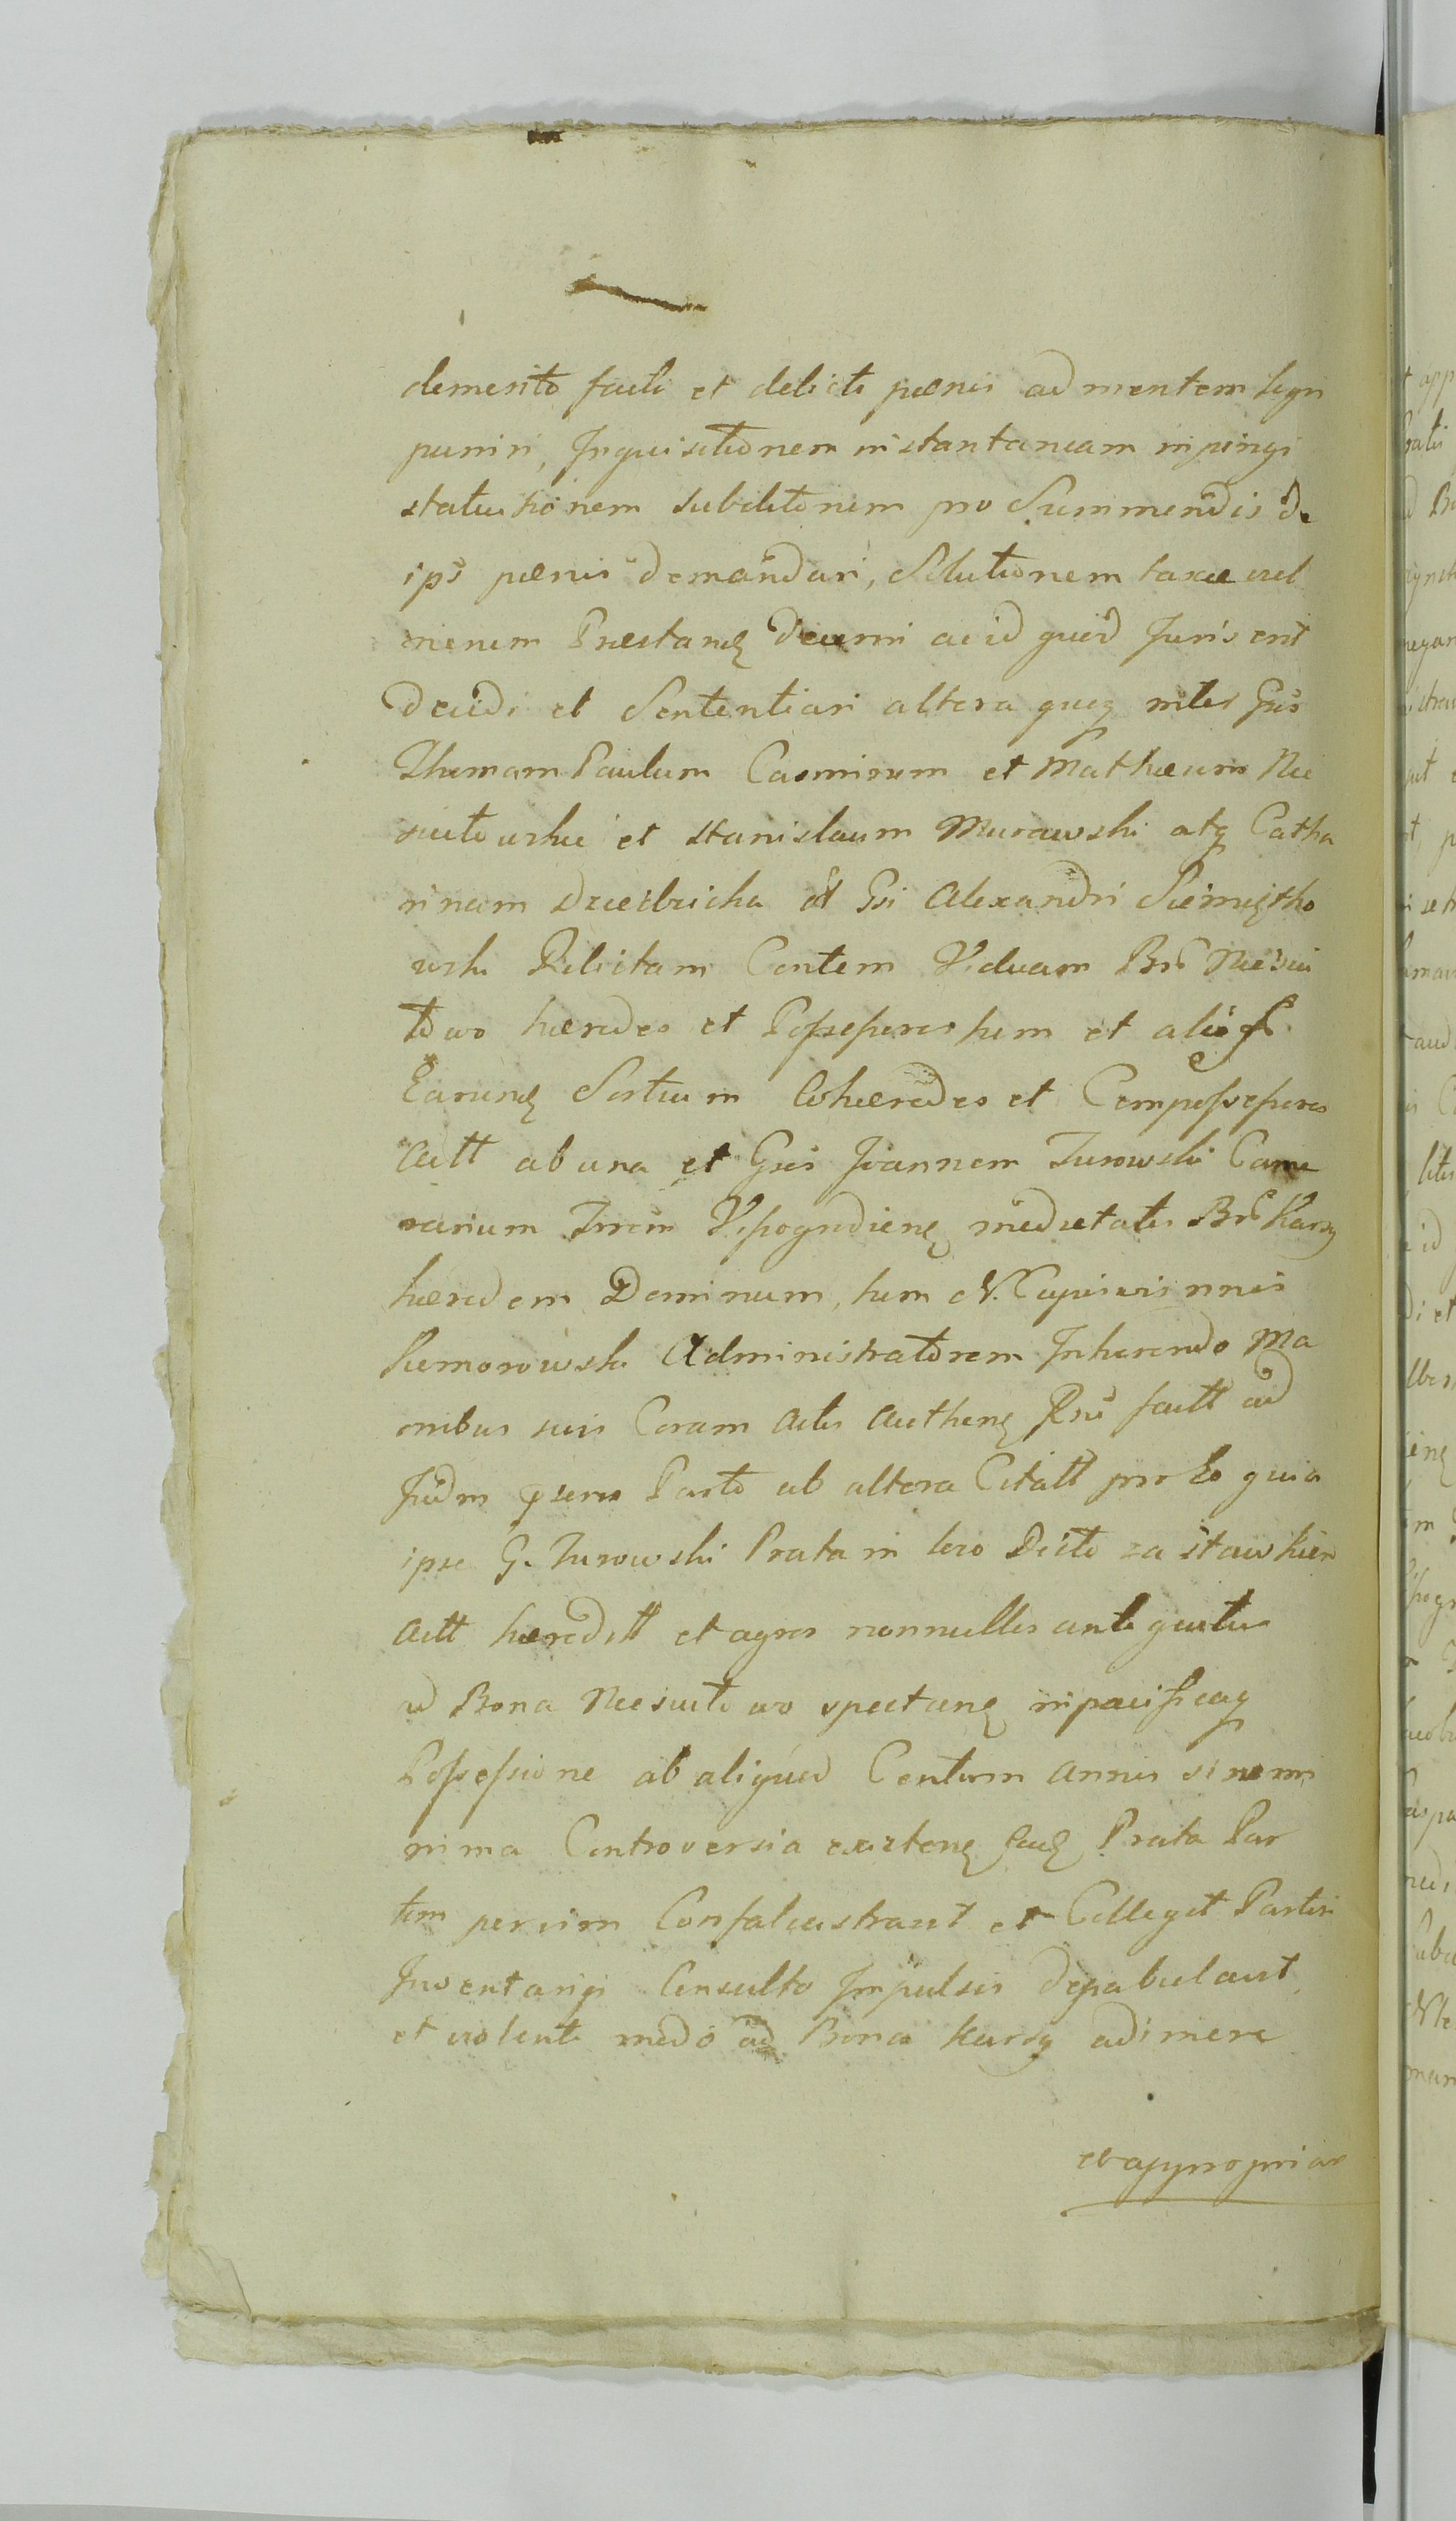 demerito facti et delicti pœnis ad mentem legu
puniri, Inquisitionem instantaneam inpingi
statutionem subditorum pro Summendis de
ips pœnis demandari, Solutionem taxæ vel
Præstanę Decerni ac id quid Juris erit
Decidi et Sententiari altera quoq inter Gſos
Thomam Paulum Casimirum et Mathæum Nie
siutowskie et Stanislaum Murawski atq Catha
rinam Dziedzicka Gsi Alexandri Siemiętko
wski Relictam Contem Viduam Brũ Niesiu
towo hæredes et Poſseſsores tum et alios
Earunę Sortium Cohæredes et Compoſseſsores
Actt ab una et Gsos Joannem Turowski Came
rarium Trrem Wyſsogrodienę medietatis Brũ Karsy
hæredem Dominum, tum N. Capucinnis
Komorowski Administratorem Inhærendo Ma
onibus suis Coram Actis Authenę Rsũ factt ad
Judm pseris Parte ab altera Citatt pro Eo quia
ipse G. Turowski Prata in loco Dicto za stawkiem
Actt hæreditt et agros nonnullos antiquitus
ad Bona Niesiutowo spectanę inpacificaq
Poſseſsione ab aliquod Centum annis sine mi
nima Controversia existenę Eadę Prata Par
tim per vim Confalcastravit et Collegit Partim
Inventarys Consulto Impulsis depabulavit
et violento modo ad Bona Karsy adimere
et appropriar